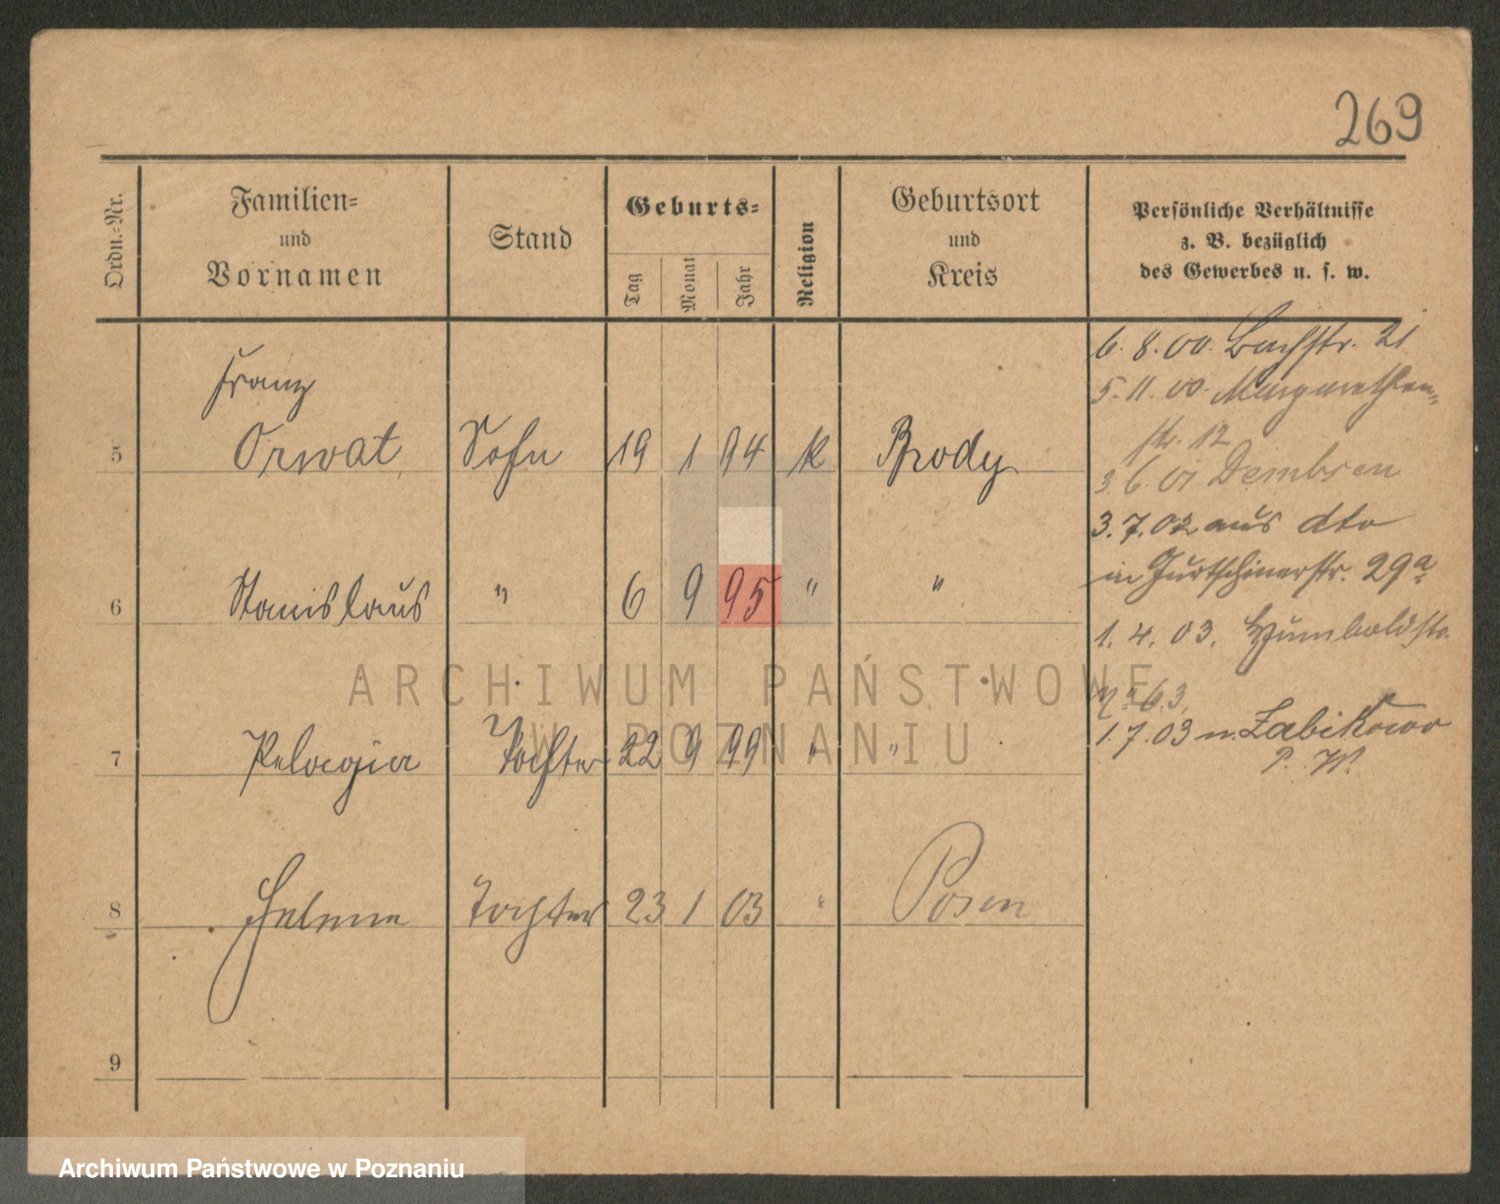 269
Ordn.-Nr.
Familien-
und
Vornamen
Stand
Geburts-
Tag
Monat
Jahr
Religion
Geburtsort
und
Kreis
Persönliche Verhältnisse
z. B. bezüglich
des Gewerbes u. s. w.
Franz
5 Orwat Sohn 19 1 94 K Brody
6 Stanislaus " 6 9 95 " "
7 Pelagia Tochter 22 9 99 " "
8 Helene Tochter 23 1 03 " Posen
9
6.8.00. Bachstr. 21
5.11.00. Margarethen-
str. 12
3.6.01 Dembsen
3.7.02 aus dto
in Jurtschinerstr. 29a
1.4.03. Humboldstr.
No 63.
1.7.03 n. Zabikowo
P. W.
ARCHIWUM PAŃSTWOWE
W POZNANIU
Archiwum Państwowe w Poznaniu